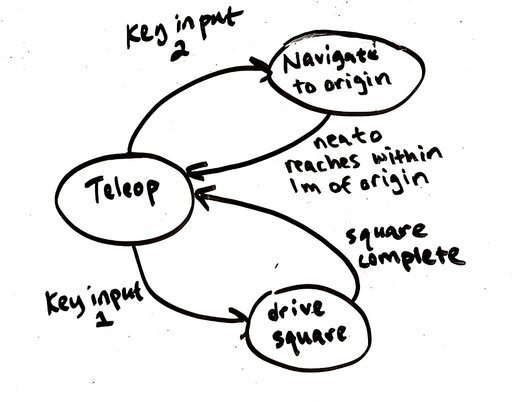 Key input
2
Navigate
to origin
neato
reaches within
1m of origin
Teleop
square
complete
Key input
1
drive
square